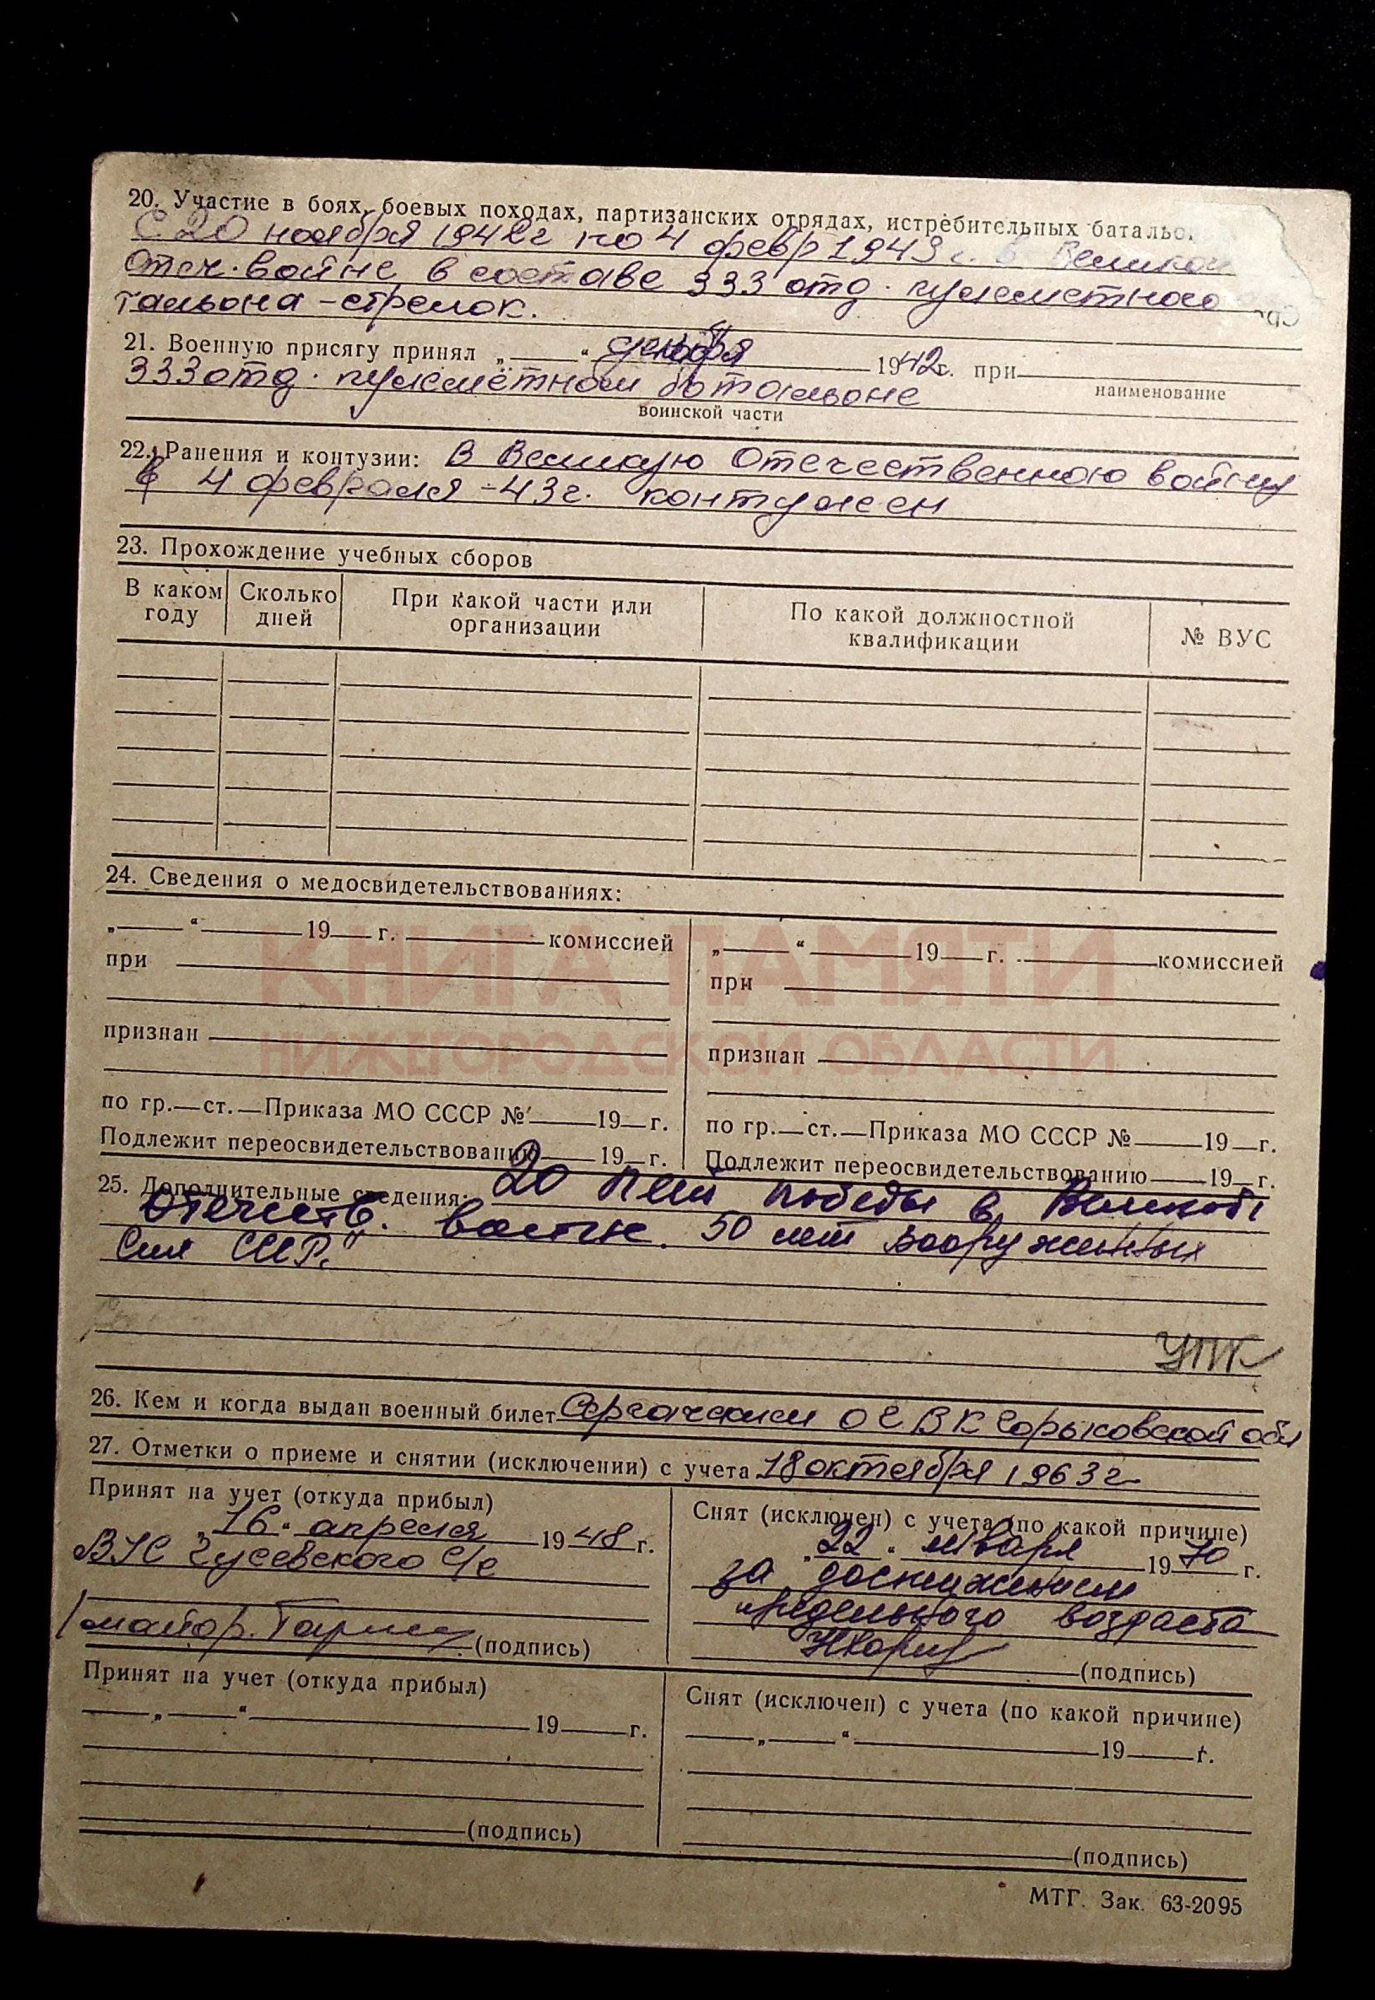 20. Участие в боях, боевых походах, партизанских отрядах, истребительных баталь
С 20 ноября 1942г по 4 февр 1943 г. в Великой
Отеч. войне в составе 333 отд. пулеметного
тальона - стрелок.
21. Военную присягу принял „ “ декабря 1942г. при
333 отд. пулемётном батальоне
наименование
воинской части
22. Ранения и контузии: В Великую Отечественною войну
4 февраля -43г. контужен
23. Прохождение учебных сборов
В каком году Сколько дней При какой части или организации По какой должностной квалификации № ВУС
24. Сведения о медосвидетельствованиях:
„ “ 19 г. комиссией „ “ 19 г. комиссией
при при
признан признан
по гр. ст. Приказа МО СССР № 19 г. по гр. ст. Приказа МО СССР № 19 г.
Подлежит переосвидетельствованию 19 г. Подлежит переосвидетельствованию 19 г.
КНИГА ПАМЯТИ
НИЖЕГОРОДСКОЙ ОБЛАСТИ
25. Дополнительные сведения: 20 лет победы в Великой
Отечеств. войне. 50 лет вооруженных
Сил СССР."
УПК
26. Кем и когда выдан военный билет Сергачским ОГВК Горьковской обл
27. Отметки о приеме и снятии (исключении) с учета 18 октября 1963г
Принят на учет (откуда прибыл) Снят (исключен) с учета (по какой причине)
„16“ апреля 1948 г. „22“ января 1970 г.
ВУС Гусевского с/с за достижением
предельного возраста
майор (подпись) (подпись)
Принят на учет (откуда прибыл) Снят (исключен) с учета (по какой причине)
„ “ 19 г. „ “ 19 г.
(подпись) (подпись)
МТГ. Зак. 63-2095